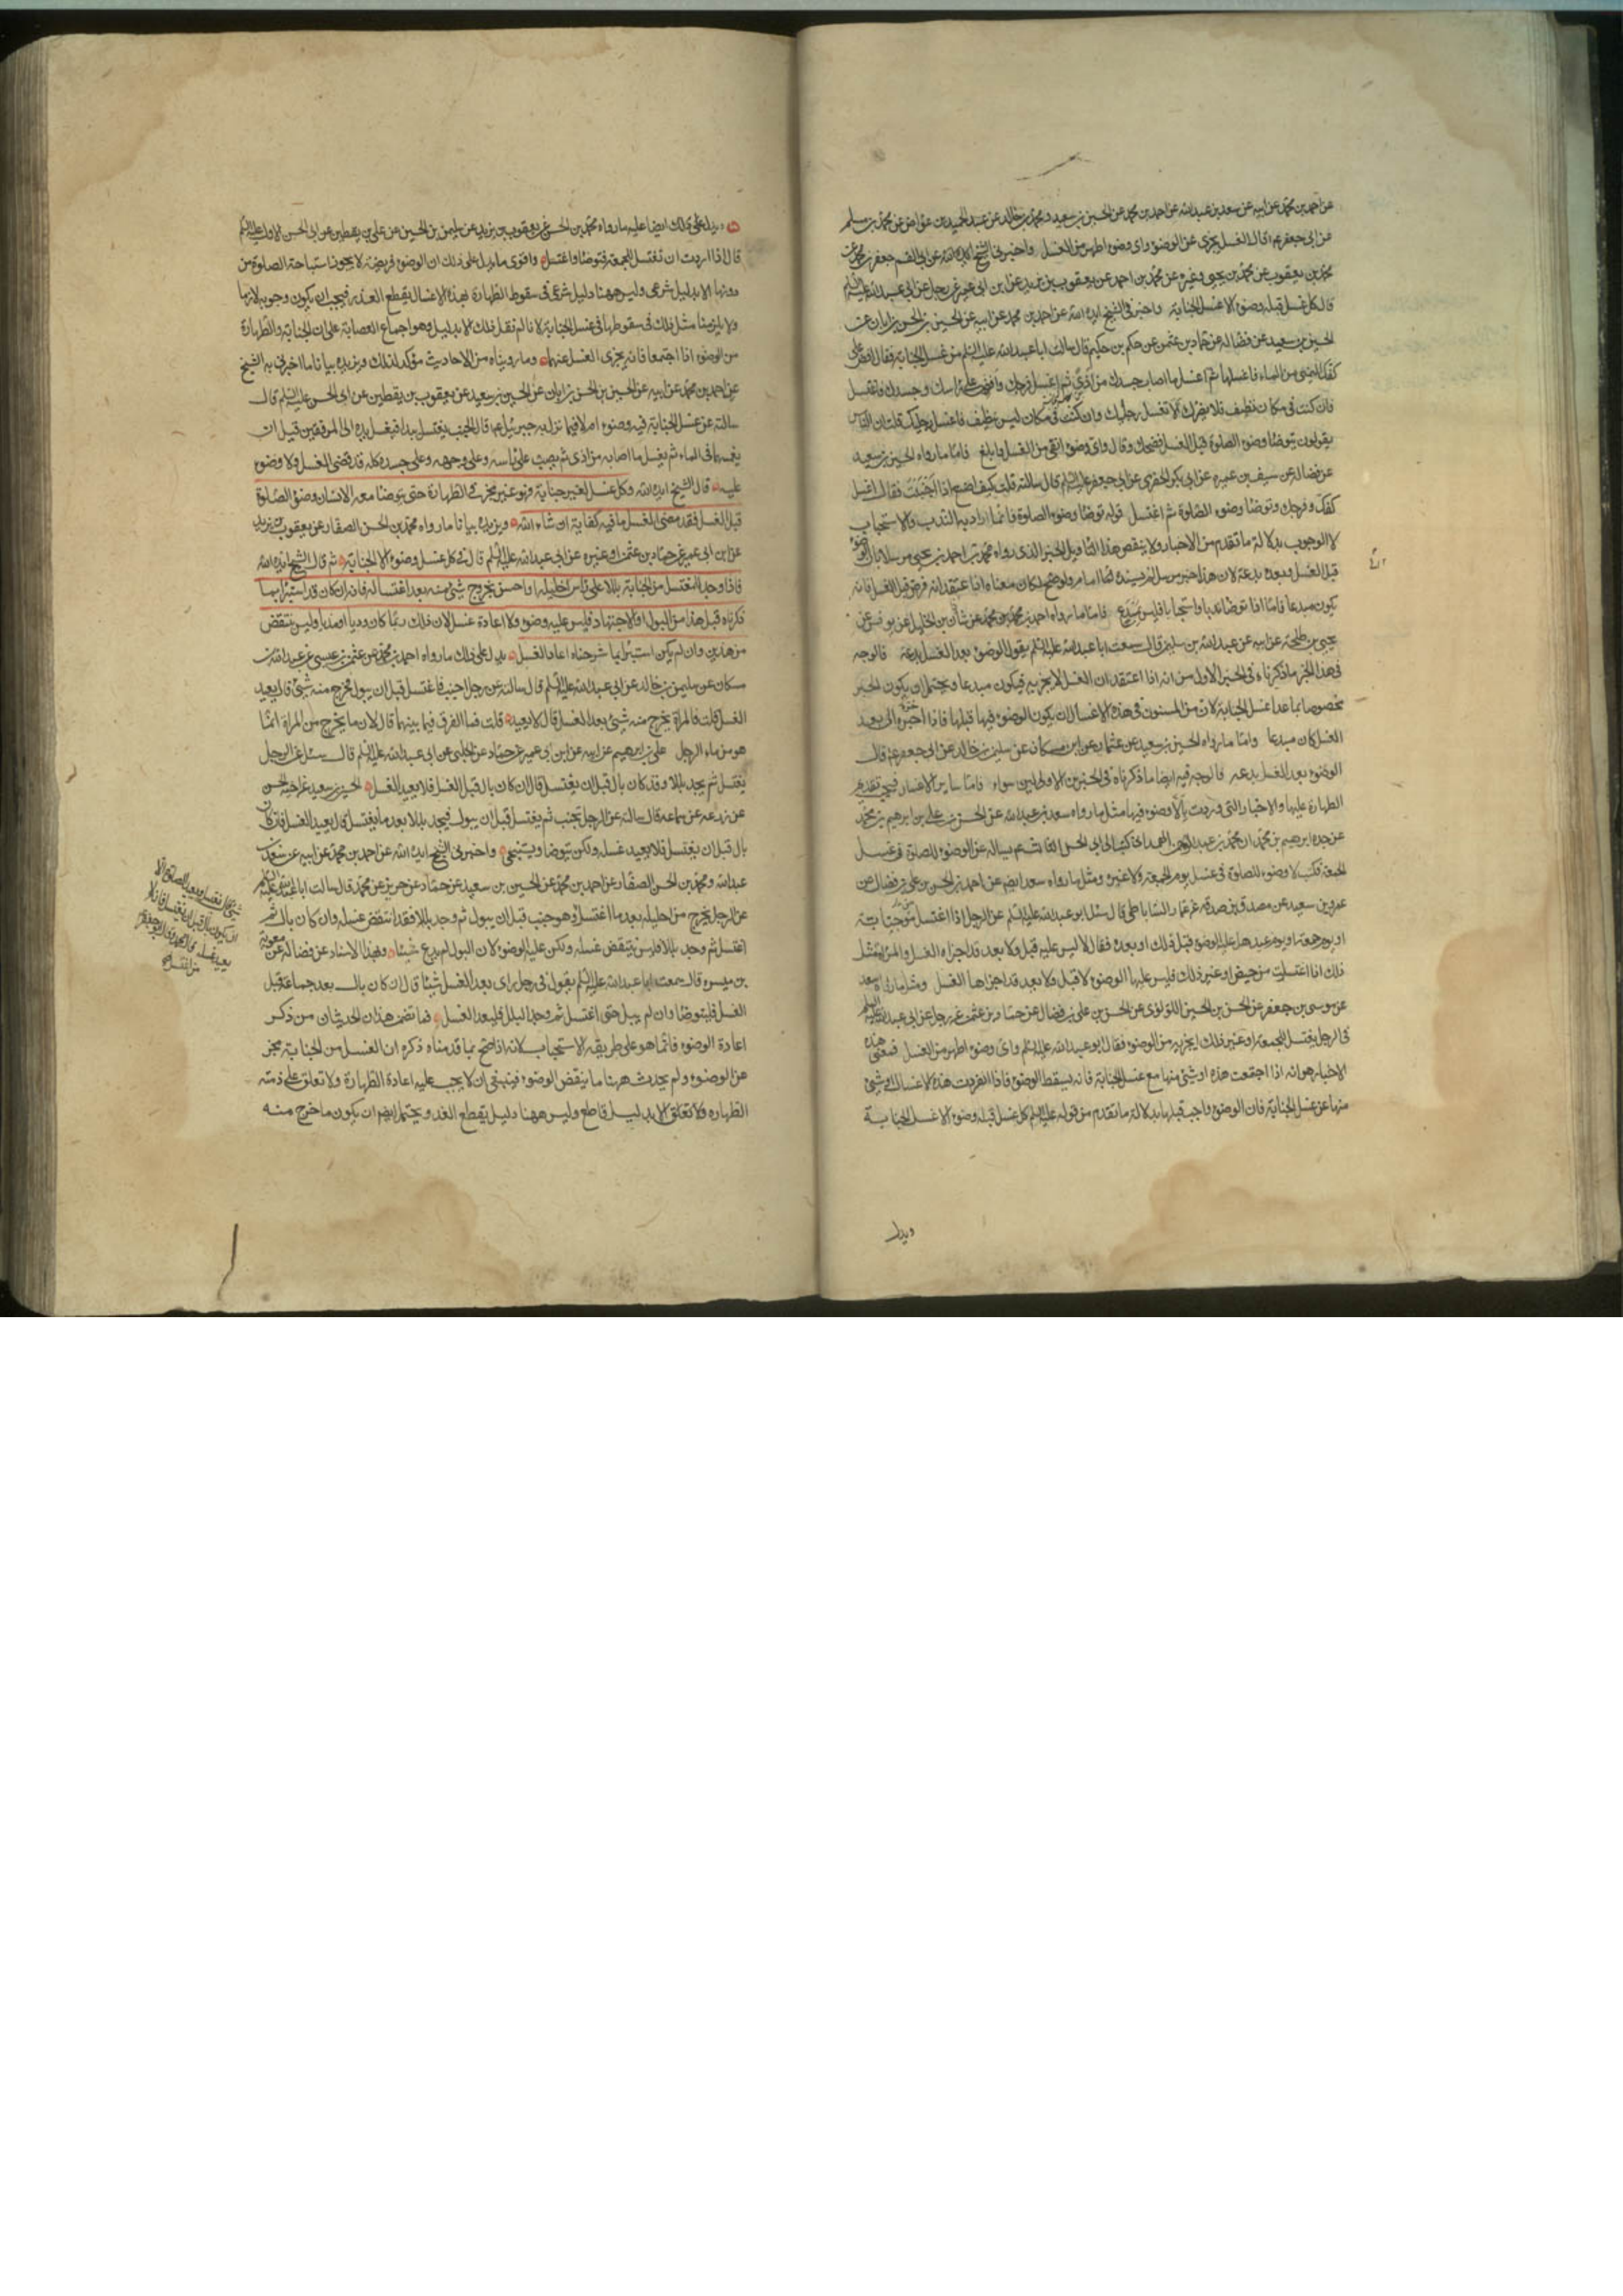 عن احمد بن محمد عن ابيه عن سعد بن عبد الله عن احمد بن محمد عن الحسين بن سعيد و محمد بن خالد عن عبد الحميد بن عواض عن محمد بن مسلم
عن ابي جعفر ع قال الغسل يجزي عن الوضوء واي وضوء اطهر من الغسل واخبرني الشيخ ايده الله عن ابي القسم جعفر بن محمد عن
محمد بن يعقوب عن محمد بن يحيى وغيره عن محمد بن احمد عن يعقوب بن يزيد عن ابن ابي عمير عن رجل عن ابي عبد الله عليه السلم
قال كل غسل قبله وضوء الا غسل الجنابة واخبرني الشيخ ايده الله عن احمد بن محمد عن ابيه عن الحسين بن الحسن بن ابان عن
الحسين بن سعيد عن فضالة عن حماد بن عثمن عن حكم بن حكيم قال سالت ابا عبد الله عليه السلم عن غسل الجنابة فقال افض على
كفك اليمنى من الماء فاغسلها ثم اغسل ما اصاب جسدك من اذى ثم اغسل فرجك وافض على راسك وجسدك فاغتسل
فان كنت في مكان نظيف فلا يضرك الا تغسل رجليك وان كنت في مكان ليس بنظيف فاغسل رجليك قلت ان الناس
يقولون يتوضأ وضوء الصلوة قبل الغسل فضحك وقال واي وضوء انقى من الغسل وابلغ فاما ما رواه الحسين بن سعيد
عن فضالة عن سيف بن عميرة عن ابي بكر الحضرمي عن ابي جعفر عليه السلم قال سالته قلت كيف اصنع اذا اجنبت فقال اغسل
كفك وفرجك وتوضأ وضوء الصلوة ثم اغتسل قوله توضأ وضوء الصلوة فانما اراد به الندب والاستحباب
لا الوجوب بدلالة ما تقدم من الاخبار ولا ينقض هذا التاويل الخبر الذي رواه محمد بن احمد بن يحيى مرسلا بان الوضوء
قبل الغسل وبعده بدعة لان هذا خبر مرسل لم يسنده الى امام ولو صح لكان معناه اذا اعتقد انه فرض قبل الغسل فانه
يكون مبدعا فاما اذا توضأ ندبا واستحبابا فليس بمبدع فاما ما رواه احمد بن محمد عن شاذان بن الخليل عن يونس عن
يحيى بن طلحة عن ابيه عن عبد الله بن سليمن قال سمعت ابا عبد الله عليه السلم يقول الوضوء بعد الغسل بدعة فالوجه
في هذا الخبر ما ذكرناه في الخبر الاول من انه اذا اعتقد ان الغسل لا يجزيه فيكون مبدعا ويحتمل ان يكون الخبر
مخصوصا بما عدا غسل الجنابة لان من المسنون في هذه الاغسال ان يكون الوضوء فيها قبلها فاذا اخره الى بعد
الغسل كان مبدعا واما ما رواه الحسين بن سعيد عن عثمان عن ابن مسكان عن سليمن بن خالد عن ابي جعفر ع قال
الوضوء بعد الغسل بدعه فالوجه فيه ايضا ما ذكرناه في الخبرين الاولين سواء فاما ساير الاغسال فيجب تقديم
الطهارة عليها والاخبار التي وردت بالا وضوء فيها مثل ما رواه سعد بن عبد الله عن الحسن بن علي بن ابرهيم بن محمد
عن جده ابرهيم بن محمد ان محمد بن عبد الرحمن الهمداني كتب الى ابي الحسن الثالث ع يساله عن الوضوء للصلوة في غسل
الجمعة فكتب لا وضوء للصلوة في غسل يوم الجمعة ولا غيره ومثل ما رواه سعد ايضا عن احمد بن الحسن بن علي بن فضال عن
عمرو بن سعيد عن مصدق بن صدقه عن عمار الساباطي قال سئل ابو عبد الله عليه السلم عن الرجل اذا اغتسل من جنابته
او يوم جمعة او يوم عيد هل عليه الوضوء قبل ذلك او بعده فقال لا ليس عليه قبل ولا بعد قد اجزاه الغسل والمراة مثل
ذلك اذا اغتسلت من حيض او غير ذلك فليس عليها الوضوء لا قبل ولا بعد قد اجزاها الغسل ومثل ما رواه سعد
عن موسى بن جعفر عن الحسن بن الحسين اللؤلؤي عن الحسن بن علي بن فضال عن حماد بن عثمن عن رجل عن ابي عبد الله عليه السلم
في الرجل يغتسل للجمعة او غير ذلك ايجزيه من الوضوء فقال ابو عبد الله عليه السلم واي وضوء اطهر من الغسل فمعنى هذه
الاخبار هو انه اذا اجتمعت هذه او شئ منها مع غسل الجنابة فانه يسقط الوضوء فاذا انفردت هذه الاغسال او شئ
منها عن غسل الجنابة فان الوضوء واجب قبلها بدلالة ما تقدم من قوله عليه السلم كل غسل قبله وضوء الا غسل الجنابة
ويدل
ويدل على ذلك ايضا عليه ما رواه محمد بن الحسن عن يعقوب بن يزيد عن سليمن بن الحسين عن علي بن يقطين عن ابي الحسن الاول عليه السلم
قال اذا اردت ان تغتسل للجمعة فتوضأ واغتسل واقوى ما يدل على ذلك ان الوضوء فريضة لا يجوز استباحة الصلوة من
دونها الا بدليل شرعي وليس ههنا دليل شرعي في سقوط الطهارة بهذه الاغسال يقطع العذر فيجب ان يكون وجوبه لازما
ولا يلزمنا مثل ذلك في سقوطها في غسل الجنابة لانا لم نقل ذلك الا بدليل وهو اجماع العصابة على ان الجنابة والطهارة
من الوضوء اذا اجتمعا فانه يجزي الغسل عنهما وما رويناه من الاحاديث مؤكد لذلك ويزيده بيانا ما اخبرني به الشيخ
عن احمد بن محمد عن ابيه عن الحسين بن الحسن بن ابان عن الحسين بن سعيد عن يعقوب بن يقطين عن ابي الحسن عليه السلم قال
سالته عن غسل الجنابة فيه وضوء ام لا فيما نزل به جبرئيل ع قال الجنب يغتسل يبدا فيغسل يديه الى المرفقين قبل ان
يغمسهما في الماء ثم يغسل ما اصابه من اذى ثم يصب على راسه وعلى وجهه وعلى جسده كله قد قضى الغسل ولا وضوء
عليه قال الشيخ ايده الله وكل غسل لغير جنابة فهو غير مجز في الطهارة حتى يتوضأ معه الانسان وضوء الصلوة
قبل الغسل فقد مضى ما فيه كفاية ان شاء الله ويزيده بيانا ما رواه محمد بن الحسن الصفار عن يعقوب بن يزيد
عن ابن ابي عمير عن حماد بن عثمن او غيره عن ابي عبد الله عليه السلم قال في كل غسل وضوء الا الجنابة ثم قال الشيخ ايده الله
فاذا وجد المغتسل من الجنابة بللا على راس احليله او احس بخروج شئ منه بعد اغتساله فانه ان كان قد استبرأ بما
ذكرناه قبل هذا من البول او الاجتهاد فليس عليه وضوء ولا اعادة غسل لان ذلك ربما كان وديا او مذيا وليس ينتقض
من هذين وان لم يكن استبرأ بما شرحناه اعاد الغسل يدل على ذلك ما رواه احمد بن محمد عن عثمن بن عيسى عن عبد الله بن
مسكان عن سليمن بن خالد عن ابي عبد الله عليه السلم قال سالته عن رجل اجنب فاغتسل قبل ان يبول فخرج منه شئ قال يعيد
الغسل قلت فالمراة يخرج منه شئ بعد الغسل قال لا يعيد قلت فما الفرق فيما بينهما قال لان ما يخرج من المراة انما
هو من ماء الرجل علي بن ابرهيم عن ابيه عن ابن ابي عمير عن حماد عن الحلبي عن ابي عبد الله عليه السلم قال سئل عن الرجل
يغتسل ثم يجد بللا وقد كان بال قبل ان يغتسل قال ان كان بال قبل الغسل فلا يعيد الغسل الحسين بن سعيد عن اخيه الحسن
عن زرعه عن سماعه قال سالته عن الرجل يجنب ثم يغتسل قبل ان يبول فيجد بللا بعد ما يغتسل قال يعيد الغسل فان كان
بال قبل ان يغتسل فلا يعيد غسله ولكن يتوضا ويستنجي واخبرني الشيخ ايده الله عن احمد بن محمد عن ابيه عن سعد بن
عبد الله ومحمد بن الحسن الصفار عن احمد بن محمد عن الحسين بن سعيد عن حماد عن حريز عن محمد قال سالت ابا عبد الله عليه السلم
عن الرجل يخرج من احليله بعد ما اغتسل وهو جنب قبل ان يبول ثم وجد بللا فقد انتقض غسله وان كان بال ثم
اغتسل ثم وجد بللا فليس ينتقض غسله ولكن عليه الوضوء لان البول لم يدع شيئا وبهذا الاسناد عن فضالة عن معوية
بن ميسره قال سمعت ابا عبد الله عليه السلم يقول في رجل راى بعد الغسل شيئا قال ان كان بال بعد جماعه قبل
الغسل فليتوضأ وان لم يبل حتى اغتسل ثم وجد البلل فليعد الغسل فما تضمن هذان الحديثان من ذكر
اعادة الوضوء فانما هو على طريقة الاستحباب لانه اذا صح بما قدمناه ذكره ان الغسل من الجنابة مجز
عن الوضوء ولم يحدث ههنا ما ينقض الوضوء فينبغي ان لا يجب عليه اعادة الطهارة ولا تعلق على ذمته
الطهاره ولا تعلق الا بدليل قاطع وليس ههنا دليل يقطع العذر ويحتمل ايضا ان يكون ما خرج منه
شئ قال يغتسل ويعيد الصلوة الا
ان يكون بال قبل ان يغتسل فانه لا
يعيد غسله قال محمد وقال ابو جعفر ع
من اغتسل